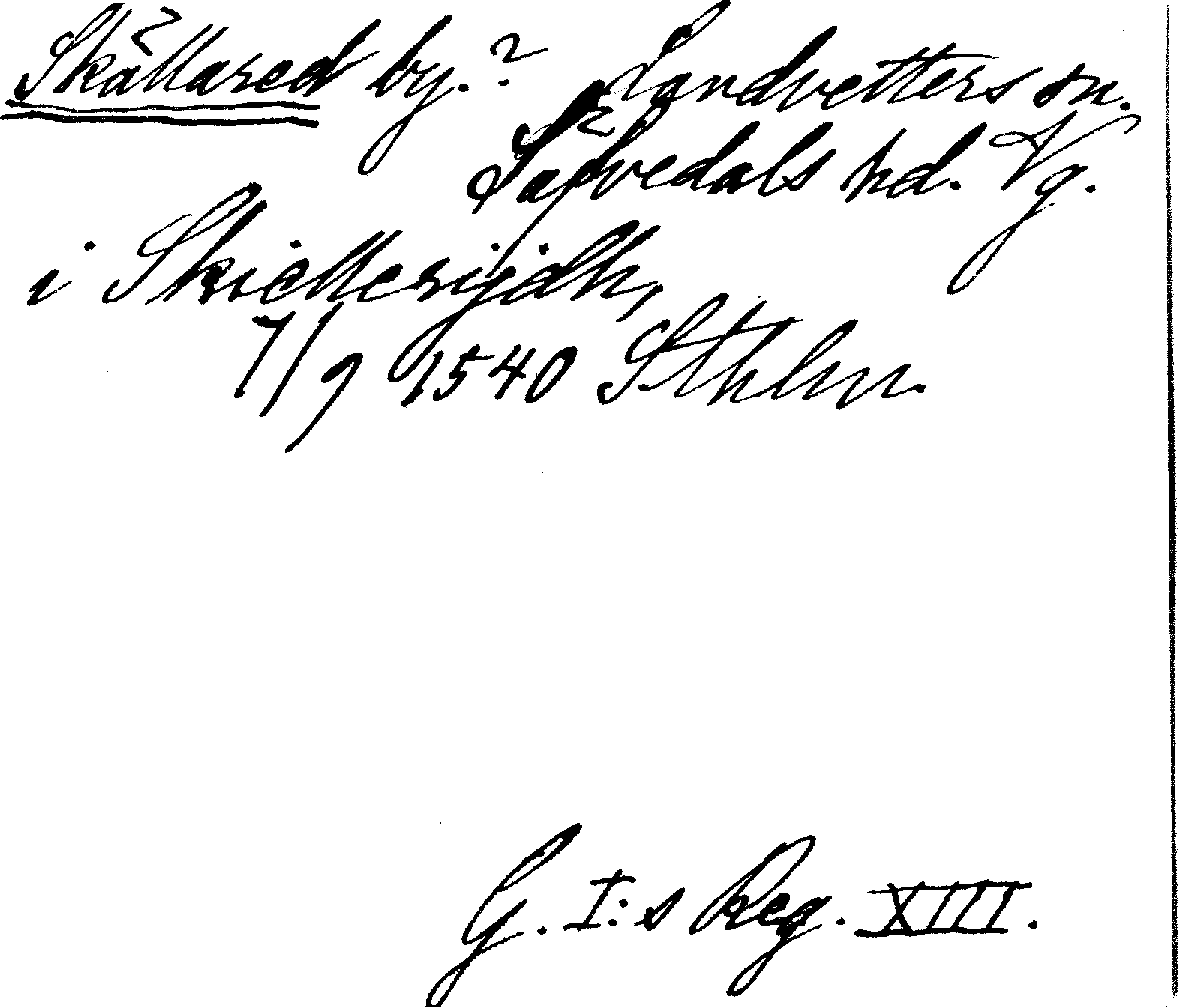 Skällared by.? Landvetters sn.
Sävedals hd. Vg.
i Skiellerijdh,
7/9 1540 Sthlm.
G. I:s Reg. XIII.